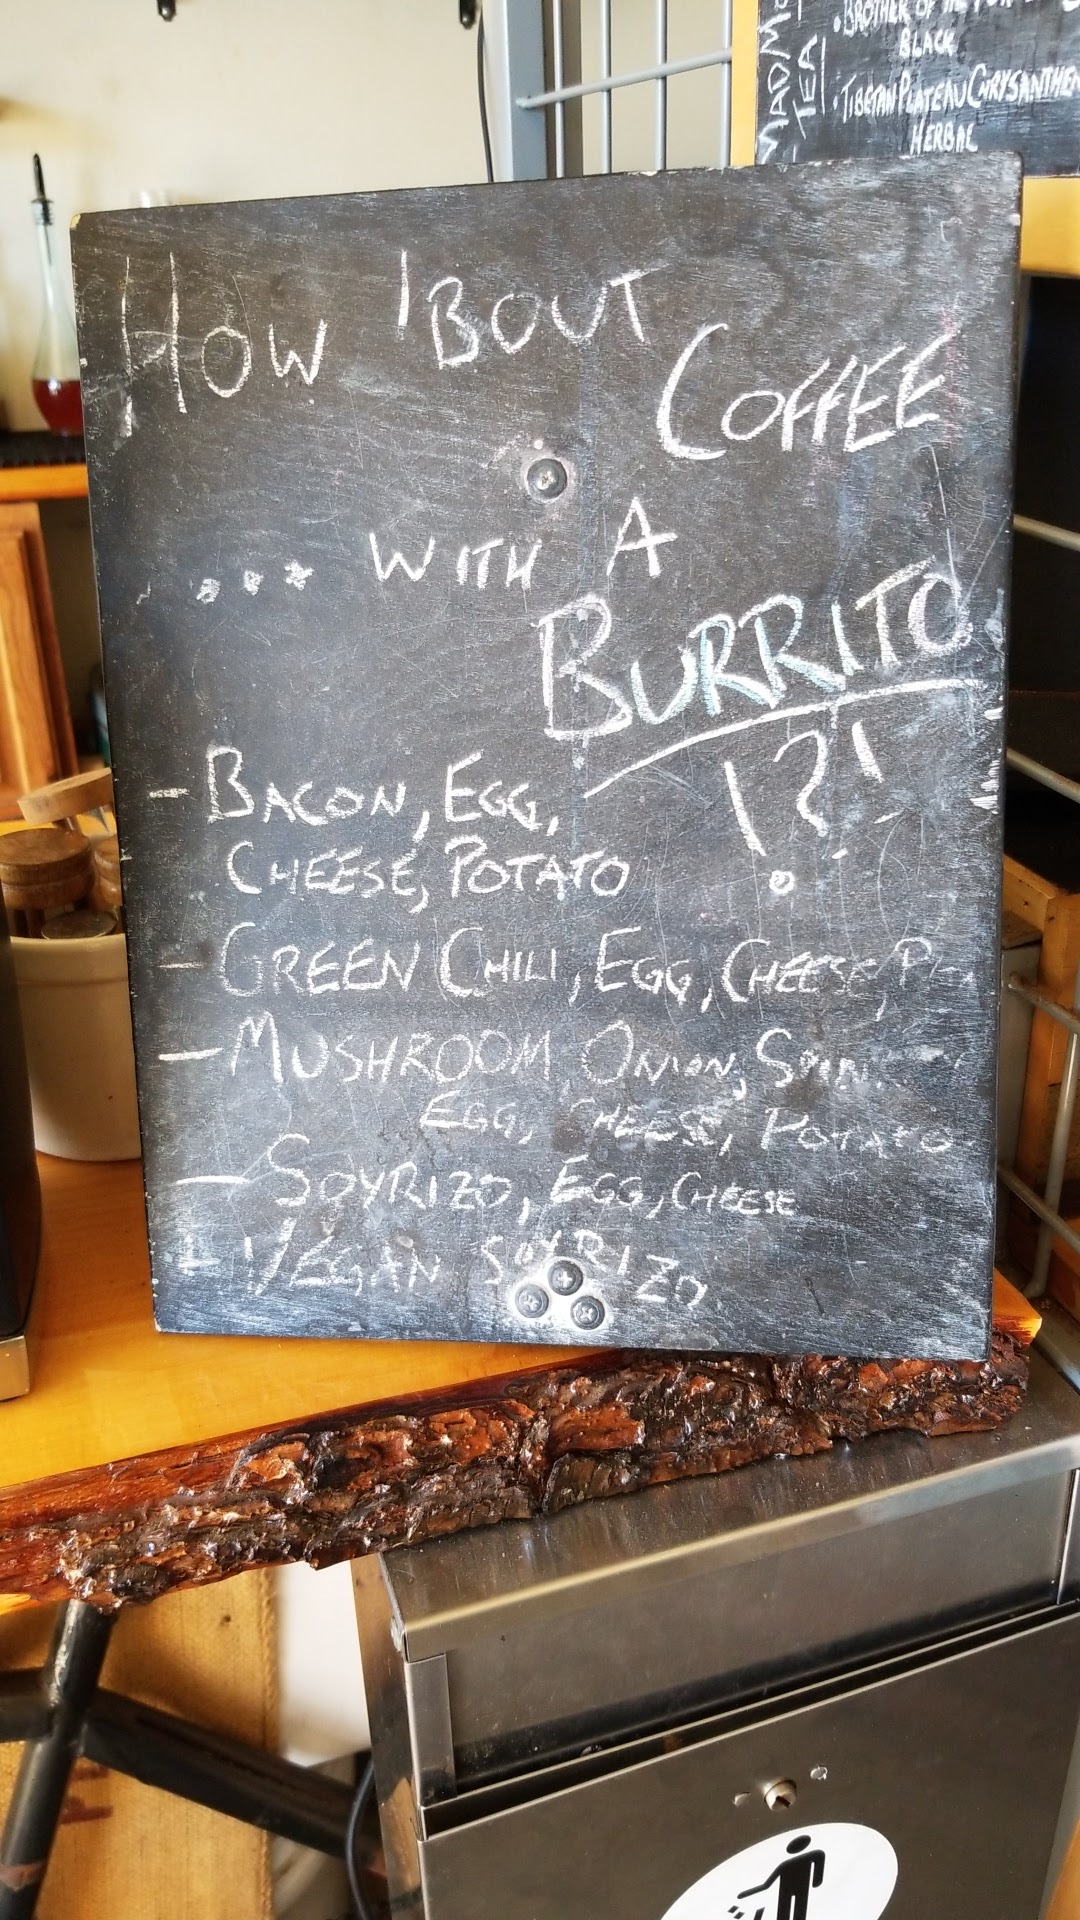 • BROTHER OF
BLACK
MAD
TEA
• TIBETAN PLATEAU
HERBAL
HOW 'BOUT
COFFEE
... WITH A
BURRITO
!?!
- BACON, EGG,
CHEESE, POTATO
- GREEN CHILI, EGG, CHEESE,
- MUSHROOM ONION,
EGG, CHEESE, POTATO
- SOYRIZO, EGG, CHEESE
- VEGAN SOYRIZO